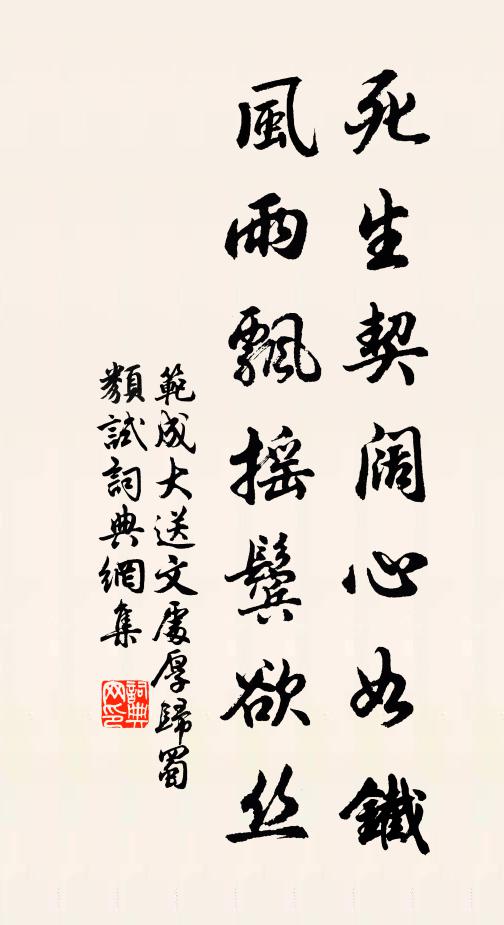 死生契阔心如鐵
風雨飄摇鬢欲丝
範成大送文處厚歸蜀
類試詞典網集
詞典
网印